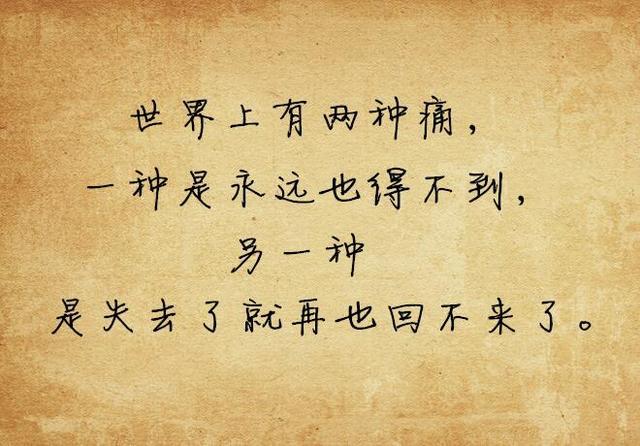 世界上有两种痛，
一种是永远也得不到，
另一种
是失去了就再也回不来了。